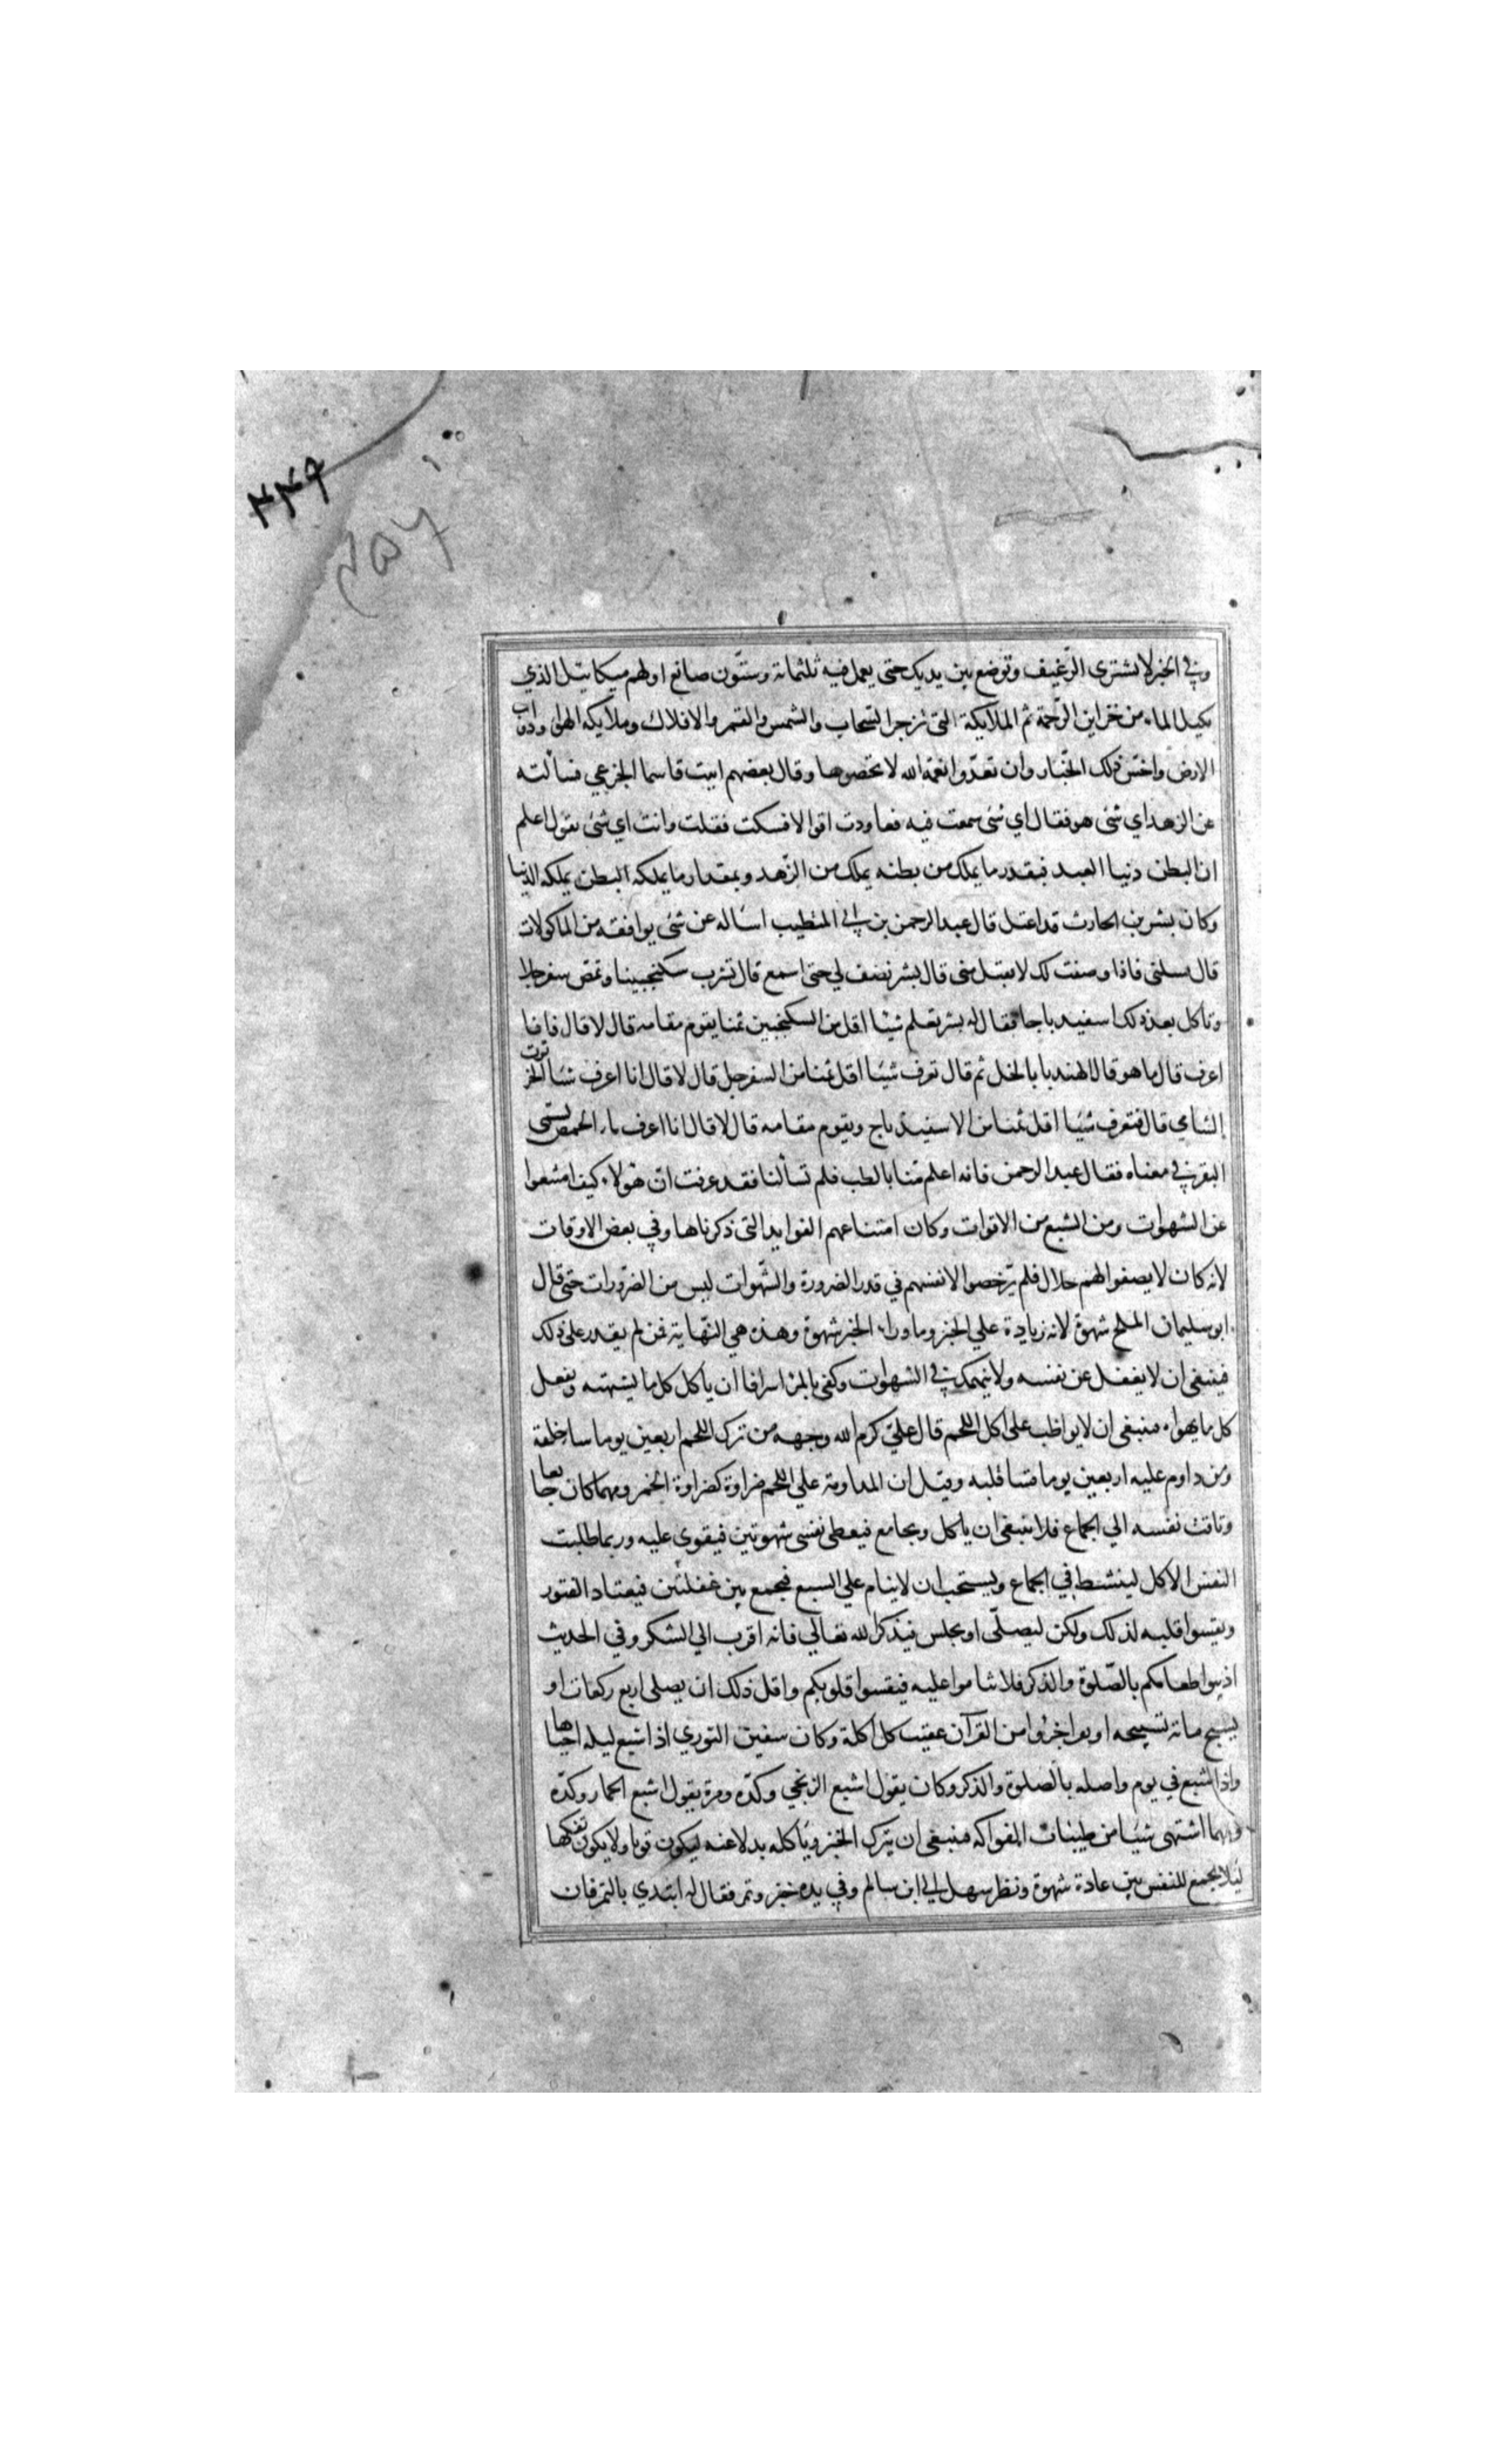 ۳۴۶
۳۵۷
وفي الخبر لا يشترى الرّغيف وتوضع بين يديك حتى يعمل فيه ثلثمائة وستّون صانع اولهم ميكائيل الذي
يكيل الماء من خزاين الرّحمة ثم الملايكة التي تزجر السّحاب والشمس والقمر والافلاك وملايكه الهوا ودواب
الارض واخر ذلك الخبّاز وان تعدّوا نعمة الله لا تحصوها وقال بعضهم اتيت قاسما الجزعي فسألته
عن الزهد اي شئ هو فقال اي شئ سمعت فيه فعاودت اقوالا فسكت فقلت وانت اي شئ تقول اعلم
ان البطن دنيا العبد فبقدر ما يملك من بطنه يملك من الزّهد وبمقدار ما يملكه البطن يملكه الدنيا
وكان بشر بن الحارث قد اعتل قال عبد الرحمن بن الي المتطبب اساله عن شئ يوافقه من الماكولات
قال تسلني فاذا وصفت لك لا تقبل مني قال بشر تصف لي حتى اسمع قال تشرب سكنجبينا وتمص سفرجلا
وتأكل بعد ذلك اسفيد باجا فقال له بشر تعلم شيئا اقل من السكنجبين ثمنا يقوم مقامه قال لا قال فانا
اعرف قال ما هو قال الهندبا بالخل ثم قال تعرف شيئا اقل ثمنا من السفرجل قال لا قال انا اعرف شيئا الخرنوب
الشامي قال فتعرف شيئا اقل ثمنا من الاسفيد باج ويقوم مقامه قال لا قال انا اعرف ماء الحمص بسمن
البقر في معناه فقال عبد الرحمن فانه اعلم منّا بالطب فلم تسألنا فقد عرفت انّ هؤلاء كيف امتنعوا
عن الشهوات ومن الشبع من الاقوات وكان امتناعهم الفوايد التي ذكرناها وفي بعض الاوقات
لانه كان لا يصفوا لهم حلال فلم يترخصوا لانفسهم في قدر الضرورة والشّهوات ليس من الضّرورات حتى قال
ابو سليمان الملح شهوة لانه زيادة علي الخبز وما وراء الخبز شهوة وهذه هي النّهاية فمن لم يقدر على ذلك
فينبغي ان لا يغفل عن نفسه ولا ينهمك في الشهوات وكفى بالمرء اسرافا ان يأكل كل ما يشتهيه ويفعل
كل ما يهواه فينبغي ان لا يواظب على اكل اللحم قال عليّ كرم الله وجهه من ترك اللحم اربعين يوما ساء خلقه
ومن داوم عليه اربعين يوما قسا قلبه وقيل ان المداومة علي اللحم ضراوة كضراوة الخمر ومهما كان جايعا
وتاقت نفسه الي الجماع فلا ينبغي ان ياكل ويجامع فيعطى نفسى شهوتين فيقوى عليه وربما طلبت
النفس الاكل لينشط في الجماع ويستحب ان لا ينام علي السبع فيجمع بين غفلتين فيعتاد الفتور
ويقسوا قلبه لذلك ولكن ليصلّى او يجلس فيذكر الله تعالي فانه اقرب الي الشكر وفي الحديث
اذيبوا طعامكم بالصّلوة والذكر فلا تناموا عليه فيقسوا قلوبكم واقل ذلك ان يصلى اربع ركعات او
يسبح مائة تسبيحه او يقرا جزوا من القرآن عقيب كل اكلة وكان سفين الثوري اذا شبع ليله احياها
واذا شبع في يوم واصله بالصلوة والذكر وكان يقول اشبع الزنجي وكدّه ومرة يقول اشبع الحمار وكدّه
ومهما اشتهى شيئا من طيبات الفواكه فينبغي ان يترك الخبز ويأكله بدلا عنه ليكون قوتا ولا يكون تفكها
ليلا يجمع للنفس بين عادة شهوة ونظر سهل الي ابن سالم وفي يده خبز وتمر فقال له ابتدي بالتمر فان